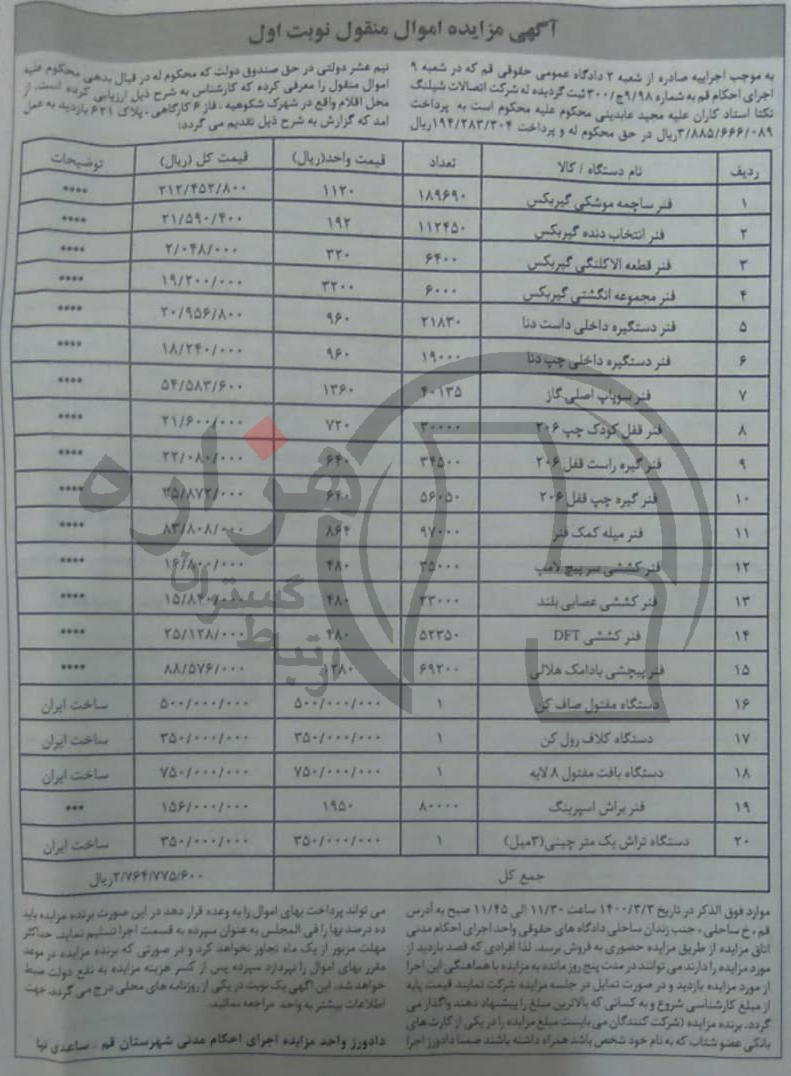 آگهی مزایده اموال منقول نوبت اول
به موجب اجراییه صادره از شعبه ۲ دادگاه عمومی حقوقی قم که در شعبه ۹
اجرای احکام قم به شماره ۹/۹۸ج/۳۰۰ ثبت گردیده له شرکت اتصالات شیلنگ
تکتا استاد کاران علیه مجید عابدینی محکوم علیه محکوم است به پرداخت
۳/۸۸۵/۶۶۶/۰۸۹ریال در حق محکوم له و پرداخت ۱۹۴/۲۸۳/۳۰۴ریال
نیم عشر دولتی در حق صندوق دولت که محکوم له در قبال بدهی محکوم علیه
اموال منقول را معرفی کرده که کارشناس به شرح ذیل ارزیابی کرده است. از
محل اقلام واقع در شهرک شکوهیه، فاز ۶ کارگاهی، پلاک ۶۲۱ بازدید به عمل
امد که گزارش به شرح ذیل تقدیم می گردد:
ردیف نام دستگاه / کالا تعداد قیمت واحد(ریال) قیمت کل (ریال) توضیحات
۱ فنر ساچمه موشکی گیربکس ۱۸۹۶۹۰ ۱۱۲۰ ۲۱۲/۴۵۲/۸۰۰ ****
۲ فنر انتخاب دنده گیربکس ۱۱۲۴۵۰ ۱۹۲ ۲۱/۵۹۰/۴۰۰ ****
۳ فنر قطعه الاکلنگی گیربکس ۶۴۰۰ ۳۲۰ ۲/۰۴۸/۰۰۰ ****
۴ فنر مجموعه انگشتی گیربکس ۶۰۰۰ ۳۲۰۰ ۱۹/۲۰۰/۰۰۰ ****
۵ فنر دستگیره داخلی داست دنا ۲۱۸۳۰ ۹۶۰ ۲۰/۹۵۶/۸۰۰ ****
۶ فنر دستگیره داخلی چپ دنا ۱۹۰۰۰ ۹۶۰ ۱۸/۲۴۰/۰۰۰ ****
۷ فنر سوپاپ اصلی گاز ۴۰۱۳۵ ۱۳۶۰ ۵۴/۵۸۳/۶۰۰ ****
۸ فنر قفل کودک چپ ۲۰۶ ۳۰۰۰۰ ۷۲۰ ۲۱/۶۰۰/۰۰۰ ****
۹ فنر گیره راست قفل ۲۰۶ ۳۴۵۰۰ ۶۴۰ ۲۲/۰۸۰/۰۰۰ ****
۱۰ فنر گیره چپ قفل ۲۰۶ ۵۶۰۵۰ ۶۴۰ ۳۵/۸۷۲/۰۰۰ ****
۱۱ فنر میله کمک فنر ۹۷۰۰۰ ۸۶۴ ۸۳/۸۰۸/۰۰۰ ****
۱۲ فنر کششی سر پیچ لامپ ۳۵۰۰۰ ۴۸۰ ۱۶/۸۰۰/۰۰۰ ****
۱۳ فنر کششی عصایی بلند ۳۳۰۰۰ ۴۸۰ ۱۵/۸۴۰/۰۰۰ ****
۱۴ فنر کششی DFT ۵۲۳۵۰ ۴۸۰ ۲۵/۱۲۸/۰۰۰ ****
۱۵ فنر پیچشی بادامک هلالی ۶۹۲۰۰ ۱۲۸۰ ۸۸/۵۷۶/۰۰۰ ****
۱۶ دستگاه مفتول صاف کن ۱ ۵۰۰/۰۰۰/۰۰۰ ۵۰۰/۰۰۰/۰۰۰ ساخت ایران
۱۷ دستگاه کلاف رول کن ۱ ۳۵۰/۰۰۰/۰۰۰ ۳۵۰/۰۰۰/۰۰۰ ساخت ایران
۱۸ دستگاه بافت مفتول ۸ لایه ۱ ۷۵۰/۰۰۰/۰۰۰ ۷۵۰/۰۰۰/۰۰۰ ساخت ایران
۱۹ فنر براش اسپرینگ ۸۰۰۰۰ ۱۹۵۰ ۱۵۶/۰۰۰/۰۰۰ ***
۲۰ دستگاه تراش یک متر چینی(۳میل) ۱ ۳۵۰/۰۰۰/۰۰۰ ۳۵۰/۰۰۰/۰۰۰ ساخت ایران
جمع کل ۲/۷۶۴/۷۷۵/۶۰۰ریال
موارد فوق الذکر در تاریخ ۱۴۰۰/۳/۳ ساعت ۱۱/۳۰ الی ۱۱/۴۵ صبح به آدرس
قم، خ ساحلی، جنب زندان ساحلی دادگاه های حقوقی واحد اجرای احکام مدنی
اتاق مزایده از طریق مزایده حضوری به فروش برسد. لذا افرادی که قصد بازدید از
مورد مزایده را دارند می توانند در مدت پنج روز مانده به مزایده با هماهنگی این اجرا
از مورد مزایده بازدید و در صورت تمایل در جلسه مزایده شرکت نمایند قیمت پایه
از مبلغ کارشناسی شروع و به کسانی که بالاترین مبلغ را پیشنهاد دهند واگذار می
گردد. برنده مزایده (شرکت کنندگان می بایست مبلغ مزایده را در یکی از کارت های
بانکی عضو شتاب که به نام خود شخص باشد همراه داشته باشند ضمنا دادورز اجرا
می تواند پرداخت بهای اموال را به وعده قرار دهد در این صورت برنده مزایده باید
ده درصد بها را فی المجلس به عنوان سپرده به قسمت اجرا تسلیم نماید. حداکثر
مهلت مزبور از یک ماه تجاوز نخواهد کرد و در صورتی که برنده مزایده در موعد
مقرر بهای اموال را نپردازد سپرده پس از کسر هزینه مزایده به نفع دولت ضبط
خواهد شد. این آگهی یک نوبت در یکی از روزنامه های محلی درج می گردد. جهت
اطلاعات بیشتر به واحد مراجعه نمائید.
دادورز واحد مزایده اجرای احکام مدنی شهرستان قم - ساعدی نیا
هزاره
گسترش
ارتباط